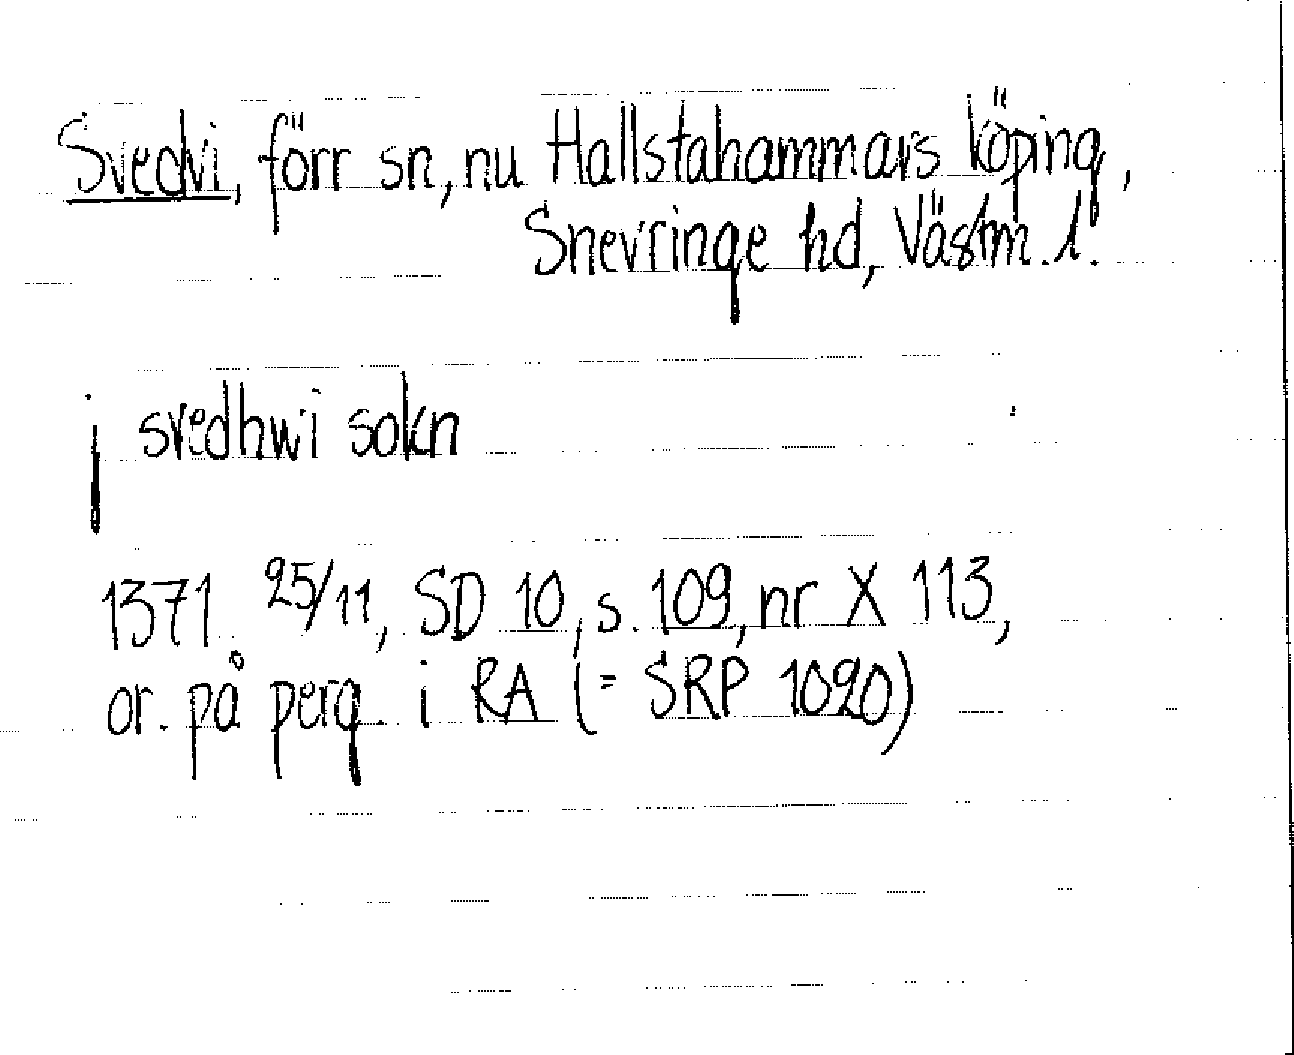 Svedvi, förr sn, nu Hallstahammars köping,
Snevringe hd, Västm. l.
j svedhwi sokn
1371 25/11, SD 10, s. 109, nr X 113,
or. på perg. i RA (= SRP 1020)